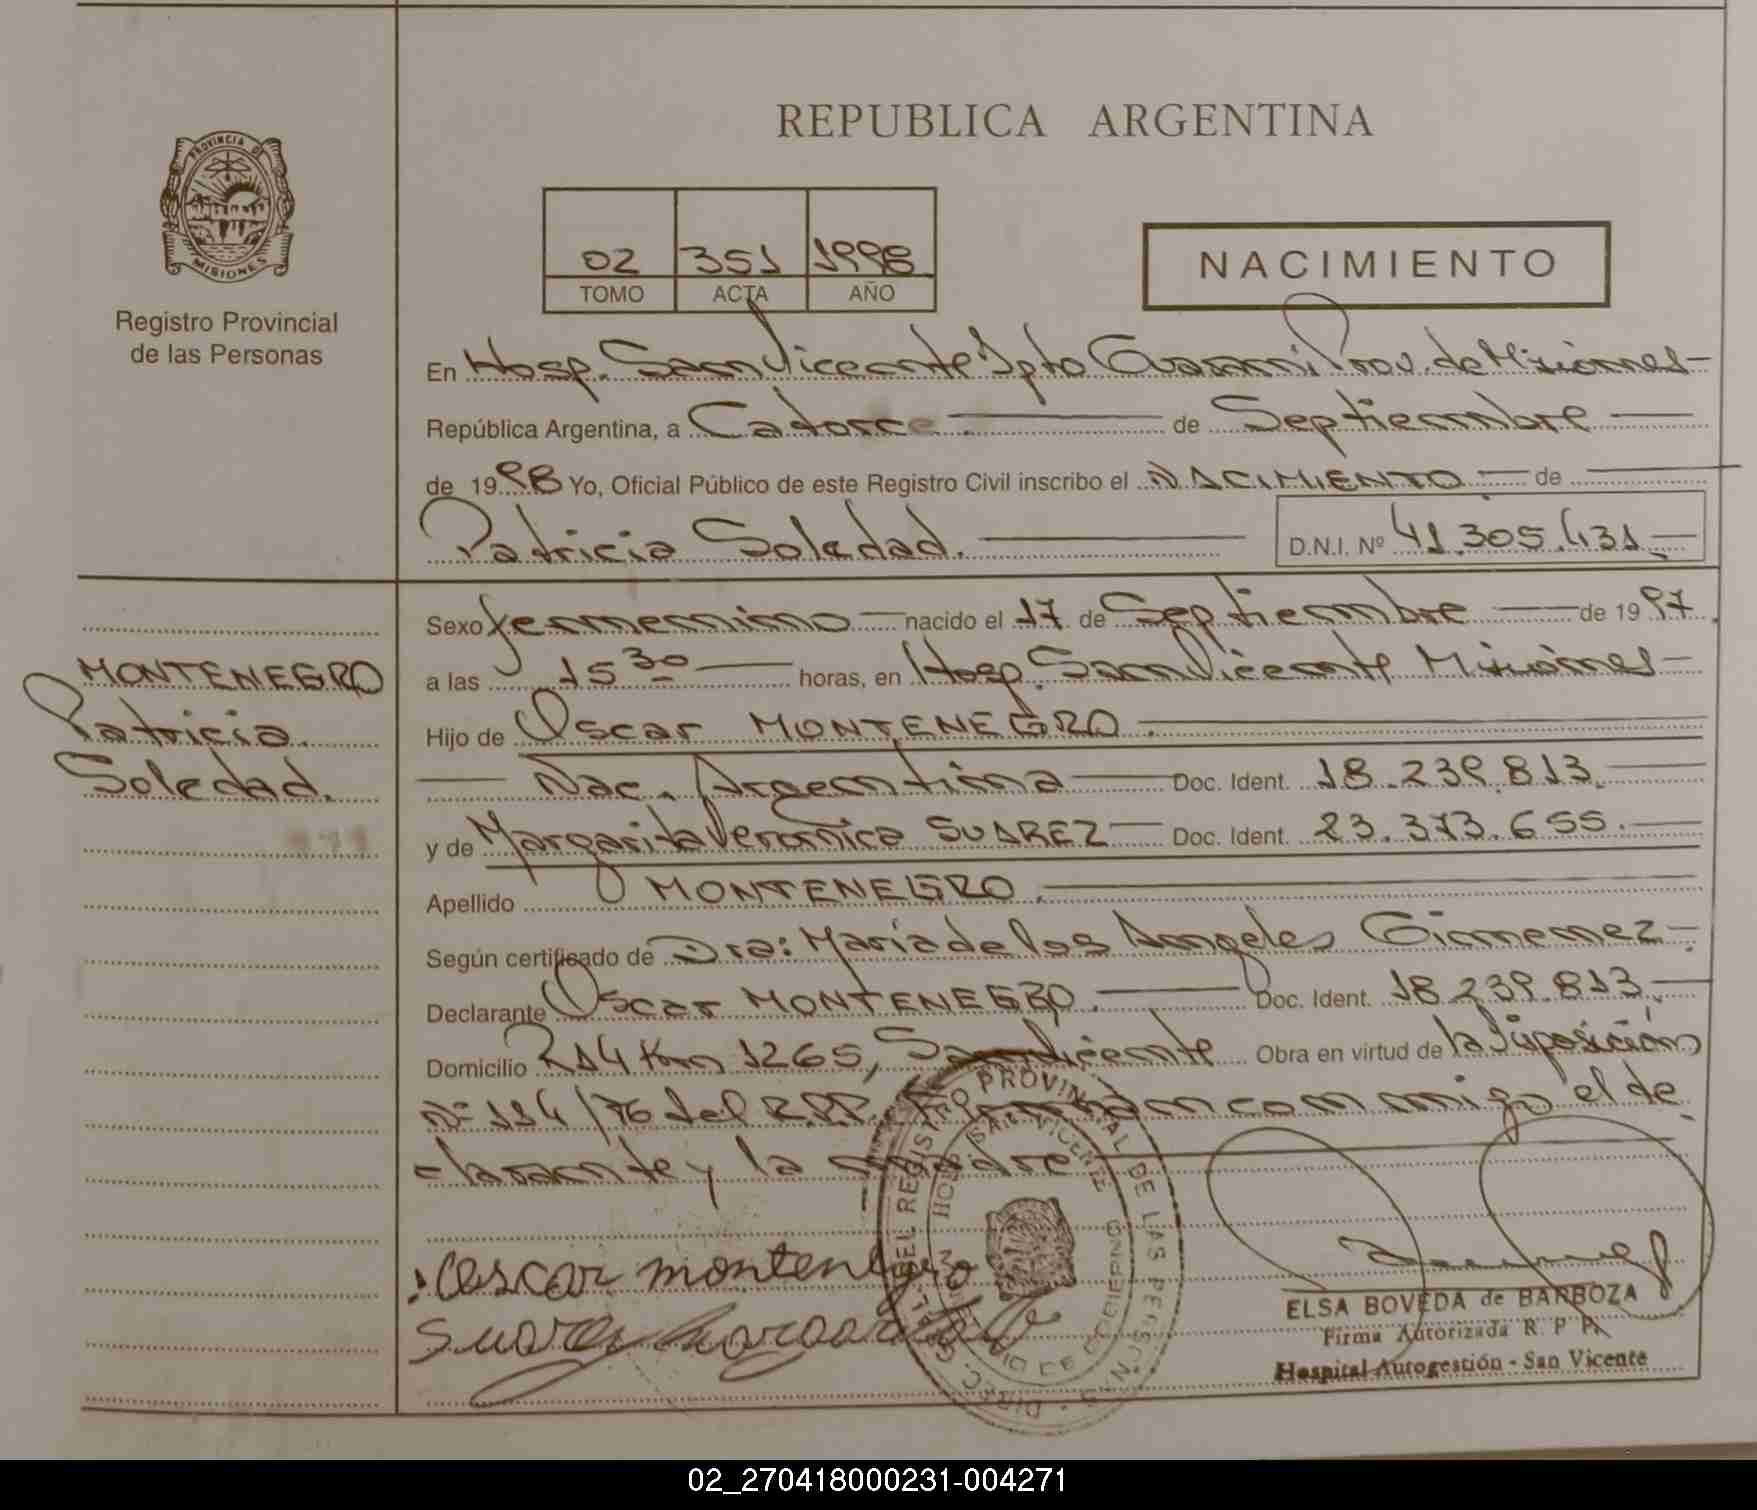 REPUBLICA ARGENTINA
PROVINCIA DE
MISIONES
Registro Provincial
de las Personas
02 351 1998
TOMO ACTA AÑO
NACIMIENTO
En Hosp. San Vicente Dpto Guarani Prov. de Misiones
República Argentina, a Catorce de Septiembre
de 1998 Yo, Oficial Público de este Registro Civil inscribo el NACIMIENTO de
Patricia Soledad. D.N.I. Nº 41.305.431
Sexo femenino nacido el 17 de Septiembre de 1997
MONTENEGRO
Patricia
Soledad.
a las 15 30 horas, en Hosp. San Vicente Misiones
Hijo de Oscar MONTENEGRO.
Nac. Argentina Doc. Ident. 18.239.813.
y de Margarita Veronica SUAREZ Doc. Ident. 23.373.655.
Apellido MONTENEGRO.
Según certificado de Dra: Maria de los Angeles Gimenez
Declarante Oscar MONTENEGRO. Doc. Ident. 18.239.813.
Domicilio R14 Km 1265, San Vicente Obra en virtud de la Disposición
Nº 114/76 del R.P.P. Firman conmigo el de
clarante y la madre
oscar montenegro
Suarez Margarita
DIREC. GRAL. DEL REGISTRO PROVINCIAL DE LAS PERSONAS
HOSP. SAN VICENTE
MINISTERIO DE GOBIERNO
ELSA BOVEDA de BARBOZA
Firma Autorizada R. P. P.
Hospital Autogestión - San Vicente
02_270418000231-004271